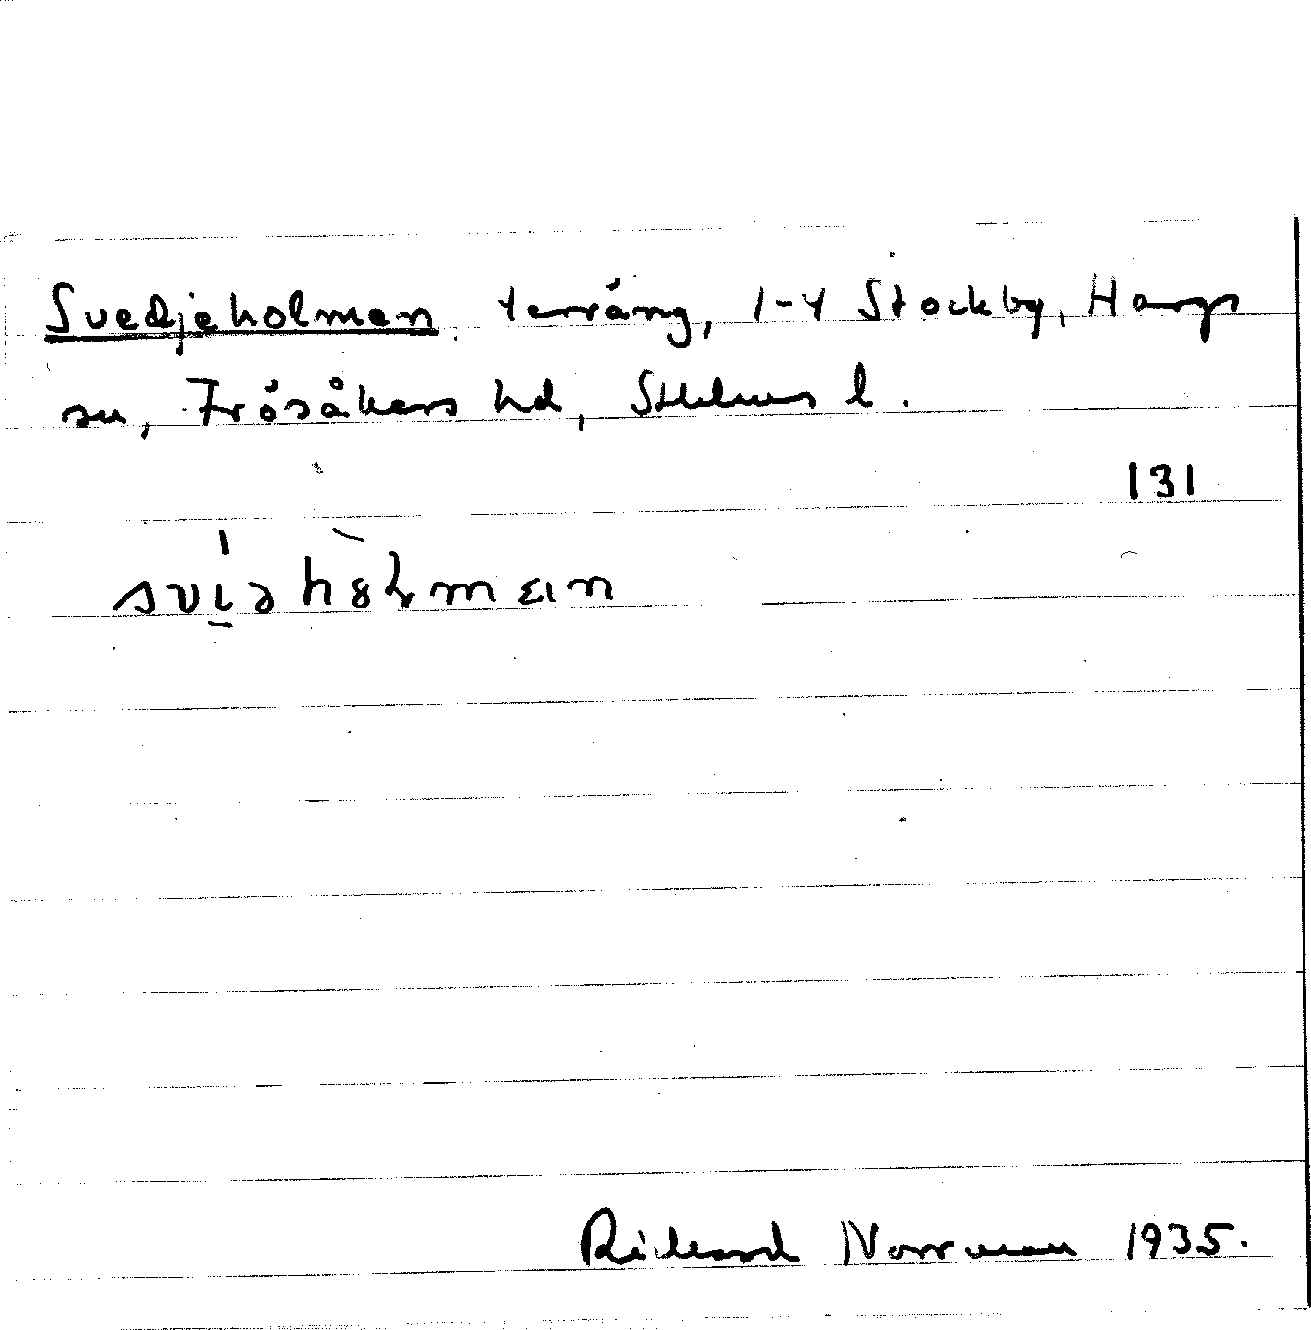 Svedjeholman, terräng, 1-4 Stockby, Hargs
sn, Frösåkers hd, Sthlms l.
131
svi̱əhòlmɛn
Richard Norrman 1935.